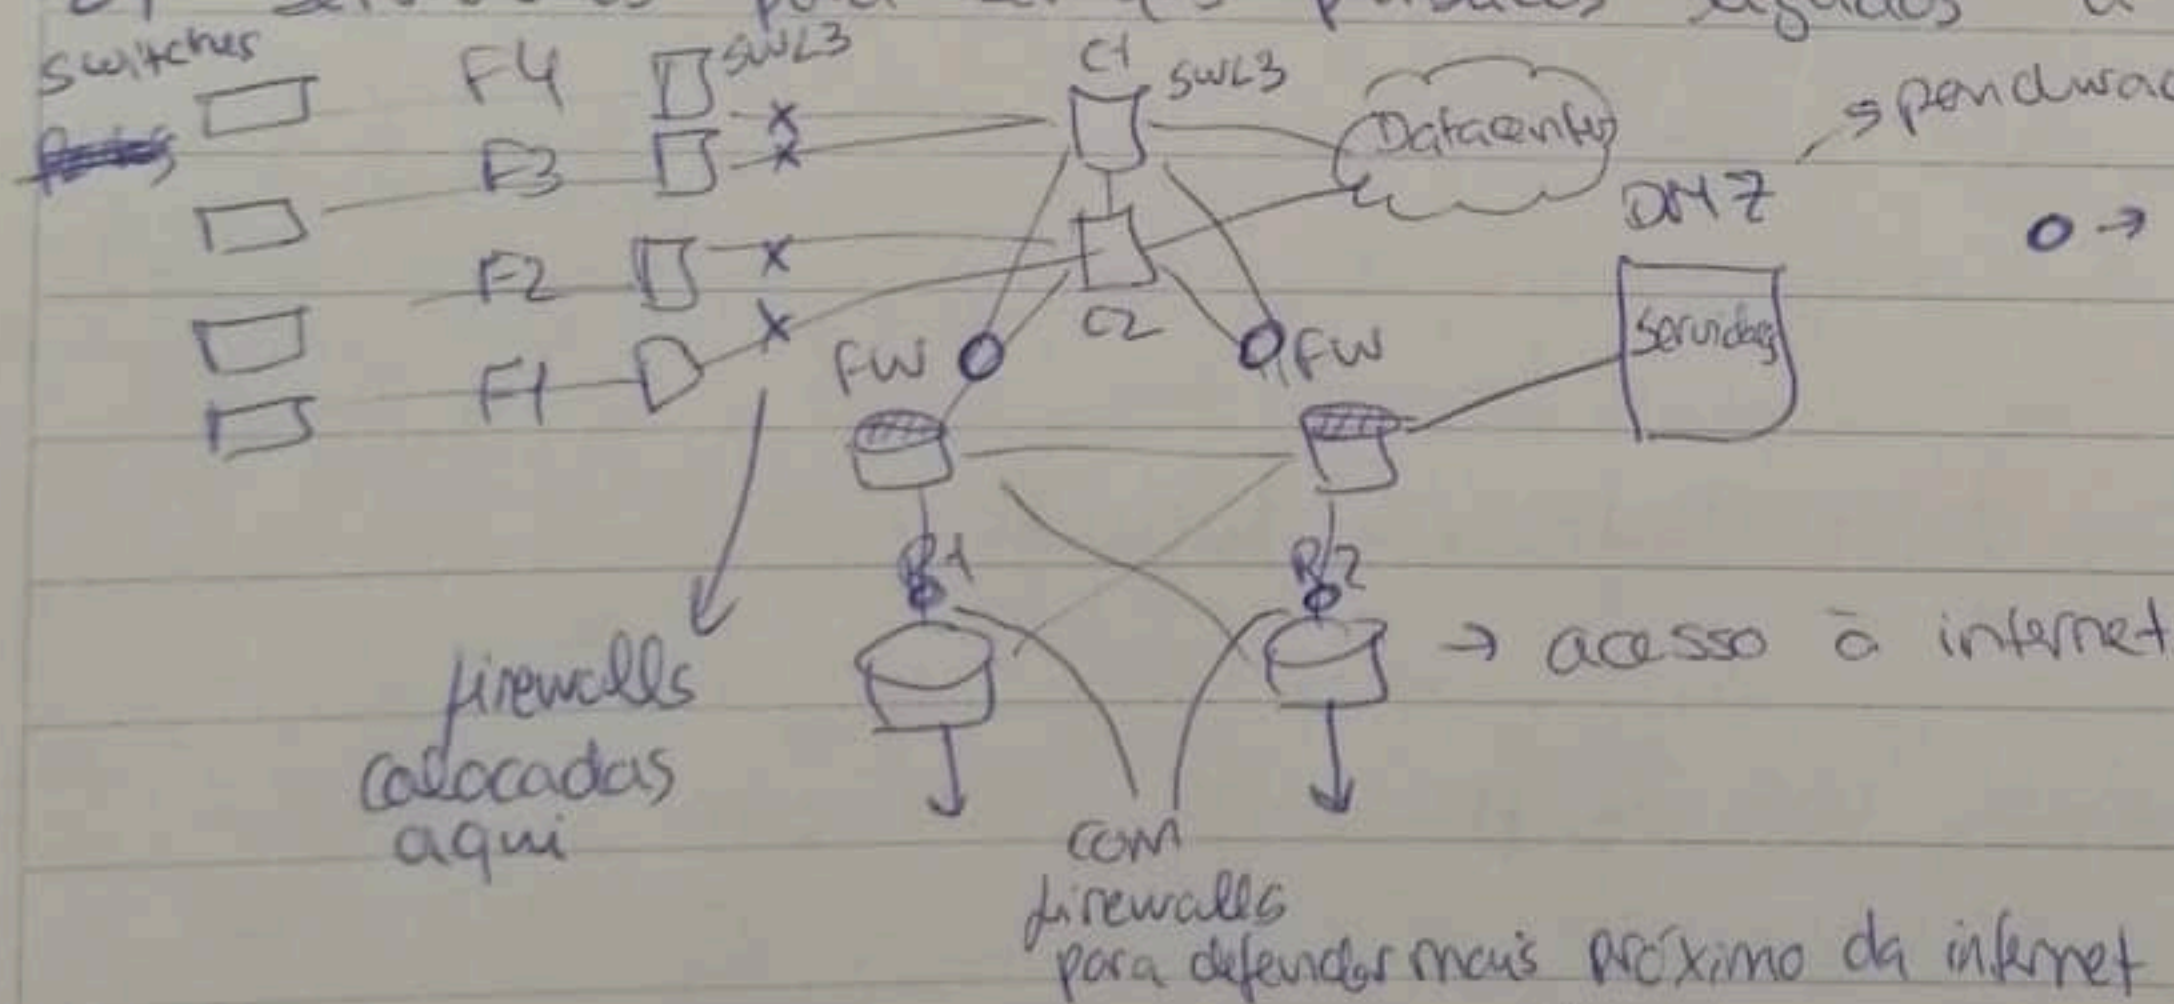 para
switches
F4
SWL3
C1
SWL3
Datacenter
F3
DMZ
F2
C2
Servidores
FW
FW
F1
R1
R2
→ acesso à internet
firewalls
colocadas
aqui
com
firewalls
para defender mais próximo da internet